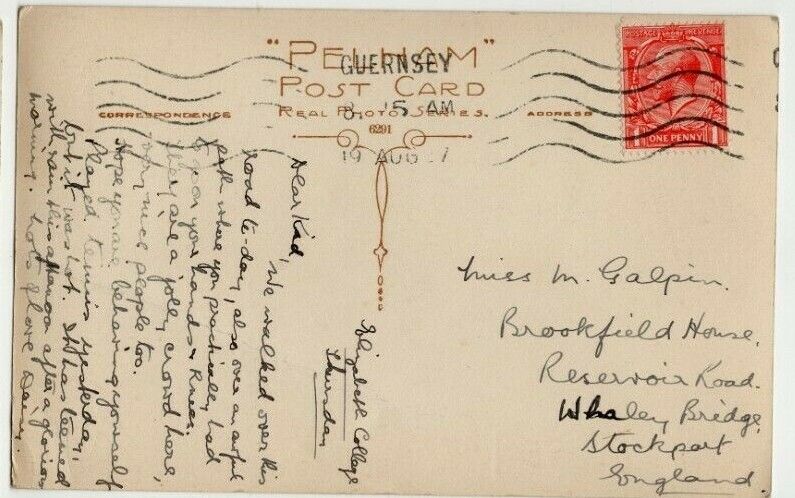 "PELHAM"
POST CARD
REAL PHOTO SERIES.
6291
CORRESPONDENCE
ADDRESS
GUERNSEY
5 AM
19 AUG 27
POSTAGE REVENUE
ONE PENNY
Elizabeth College
Thursday
Dear Kid,
We walked over this
road to-day, also over an awful
path where you practically had
to go on your hands & knees.
They are a jolly crowd here,
very nice people too.
Hope you are behaving yourself
Played tennis yesterday,
but it was hot. It has teemed
with rain this afternoon after a glorious
morning. Lots of love Daisy.
Miss M. Galpin.
Brookfield House.
Reservoir Road.
Whaley Bridge.
Stockport
England.